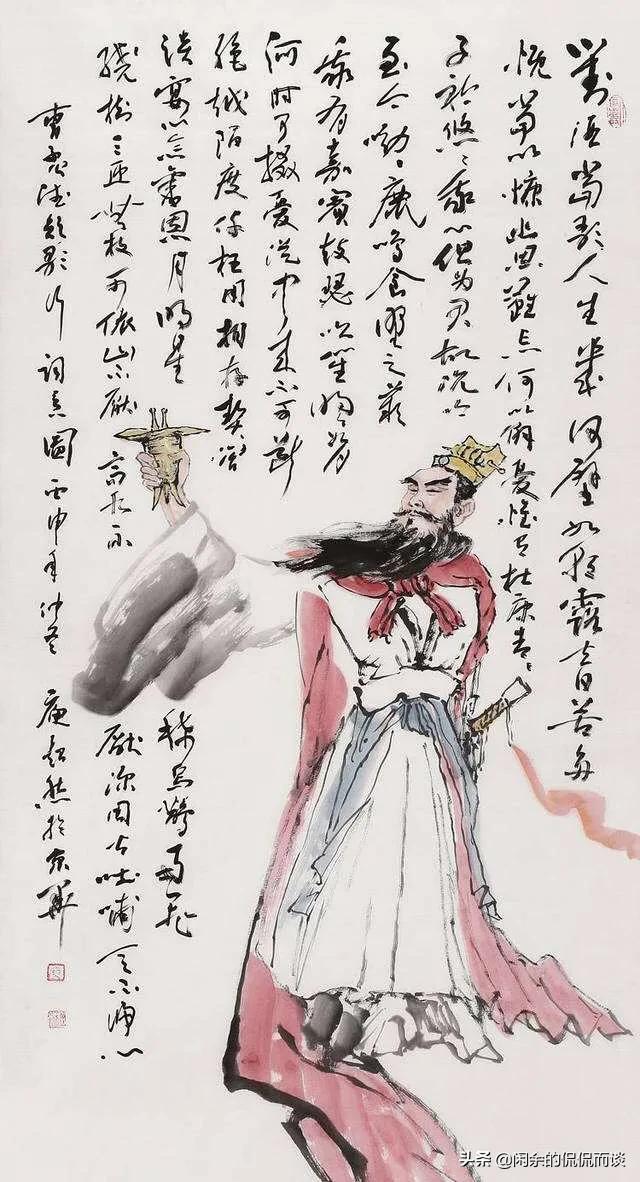 對酒當歌人生幾何譬如朝露去日苦多
慨當以慷幽思難忘何以解憂惟有杜康青々
子衿悠々我心但为君故沉吟
至今呦々鹿鳴食野之苹
我有嘉賓鼓瑟吹笙明々如月
何时可掇憂從中來不可斷
絕越陌度阡枉用相存契闊
談宴心念舊恩月明星
稀烏鵲南飛
繞樹三匝無枝可依山不厭
高水不
厭深周公吐哺天下歸心
曹孟德短歌行詞意圖丙申年仲冬 超然於京華
头条 @闲余的侃侃而谈